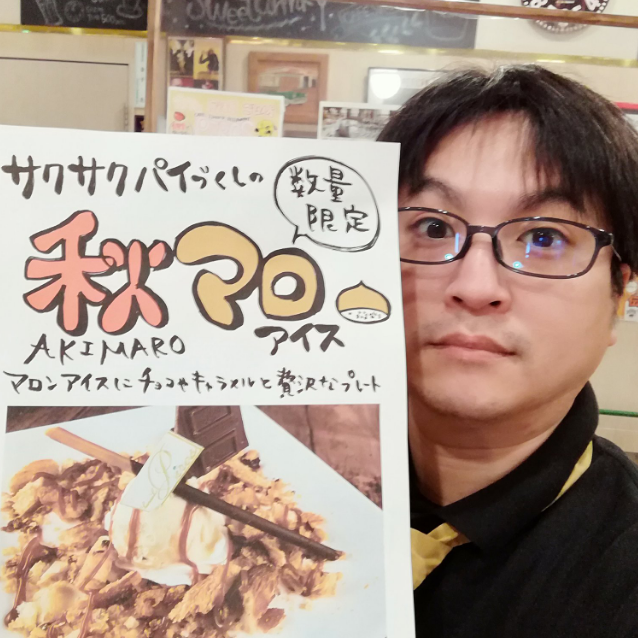 サクサクパイづくしの
数量
限定
秋マロ
AKIMARO
アイス
マロンアイスにチョコやキャラメルと贅沢なプレート